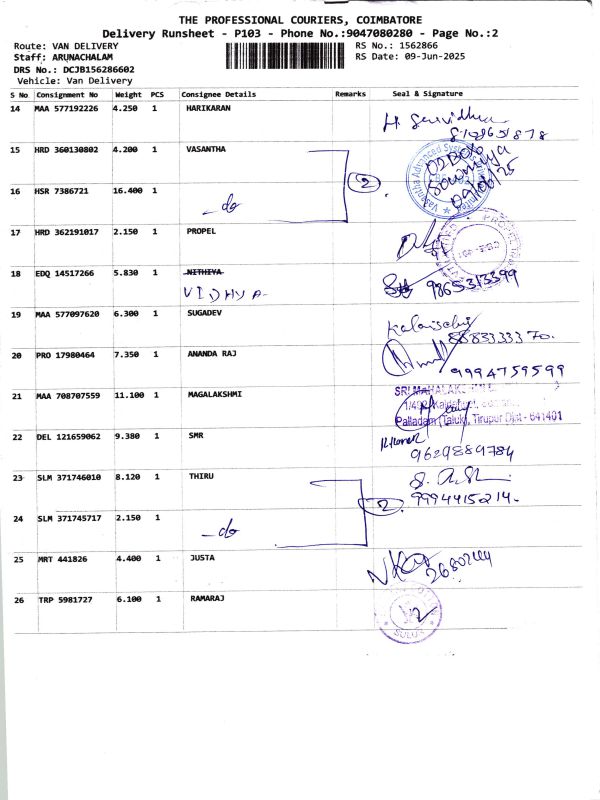 THE PROFESSIONAL COURIERS, COIMBATORE
Delivery Runsheet - P103 - Phone No.:9047080280 - Page No.:2
Route: VAN DELIVERY RS No.: 1562866
Staff: ARUNACHALAM RS Date: 09-Jun-2025
DRS No.: DCJB156286602
Vehicle: Van Delivery
S No Consignment No Weight PCS Consignee Details Remarks Seal & Signature
14 MAA 577192226 4.250 1 HARIKARAN
15 HRD 360130802 4.200 1 VASANTHA
Vasantha Advanced Systems
Sowmiya
09/06/25
16 HSR 7386721 16.400 1 do 2
17 HRD 362191017 2.150 1 PROPEL
PROPEL
18 EDQ 14517266 5.830 1 NITHIYA
VIDHYA 9865313399
19 MAA 577097620 6.300 1 SUGADEV
20 PRO 17980464 7.350 1 ANANDA RAJ
9994759599
21 MAA 708707559 11.100 1 MAGALAKSHMI
Palladam (Taluk), Tirupur Dist - 641401
22 DEL 121659062 9.380 1 SMR
9629889784
23 SLM 371746010 8.120 1 THIRU
9994415214.
24 SLM 371745717 2.150 1 do 2
25 MRT 441826 4.400 1 JUSTA
26 TRP 5981727 6.100 1 RAMARAJ
SULUR